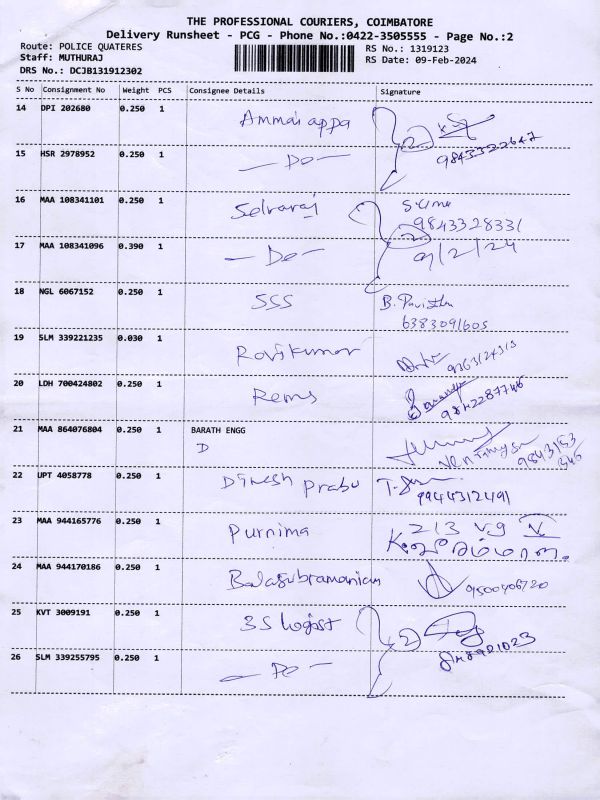 THE PROFESSIONAL COURIERS, COIMBATORE
Delivery Runsheet - PCG - Phone No.:0422-3505555 - Page No.:2
Route: POLICE QUATERES RS No.: 1319123
Staff: MUTHURAJ RS Date: 09-Feb-2024
DRS No.: DCJB131912302
S No Consignment No Weight PCS Consignee Details Signature
14 DPI 202680 0.250 1 Ammaiappa 2
9843322647
15 HSR 2978952 0.250 1 — Do —
16 MAA 108341101 0.250 1 Selvaraj
9843328331
17 MAA 108341096 0.390 1 — Do — 2 9/2/24
18 NGL 6067152 0.250 1 SSS B. Pavithra
6383091605
19 SLM 339221235 0.030 1 Ravikumar
20 LDH 700424802 0.250 1 Rems 9842287746
21 MAA 864076804 0.250 1 BARATH ENGG
D 9843153
22 UPT 4058778 0.250 1 Dinesh Prabu
9944312491
23 MAA 944165776 0.250 1 Purnima 213 V.G V
24 MAA 944170186 0.250 1 Balasubramanian 9500406720
25 KVT 3009191 0.250 1 3S Logist 2
26 SLM 339255795 0.250 1 — Do —